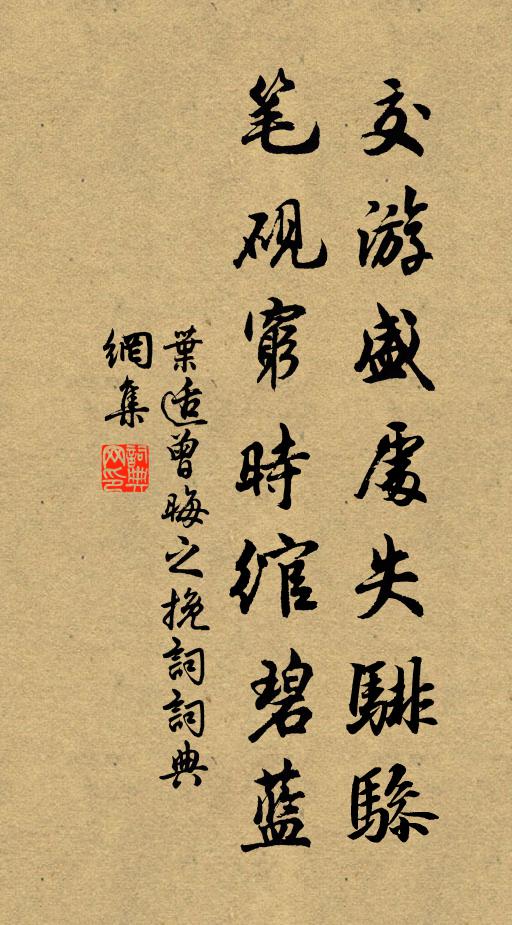 交游盛處失騑驂
笔硯窮時綰碧藍
葉适曾晦之挽詞詞典
網集
詞典网印